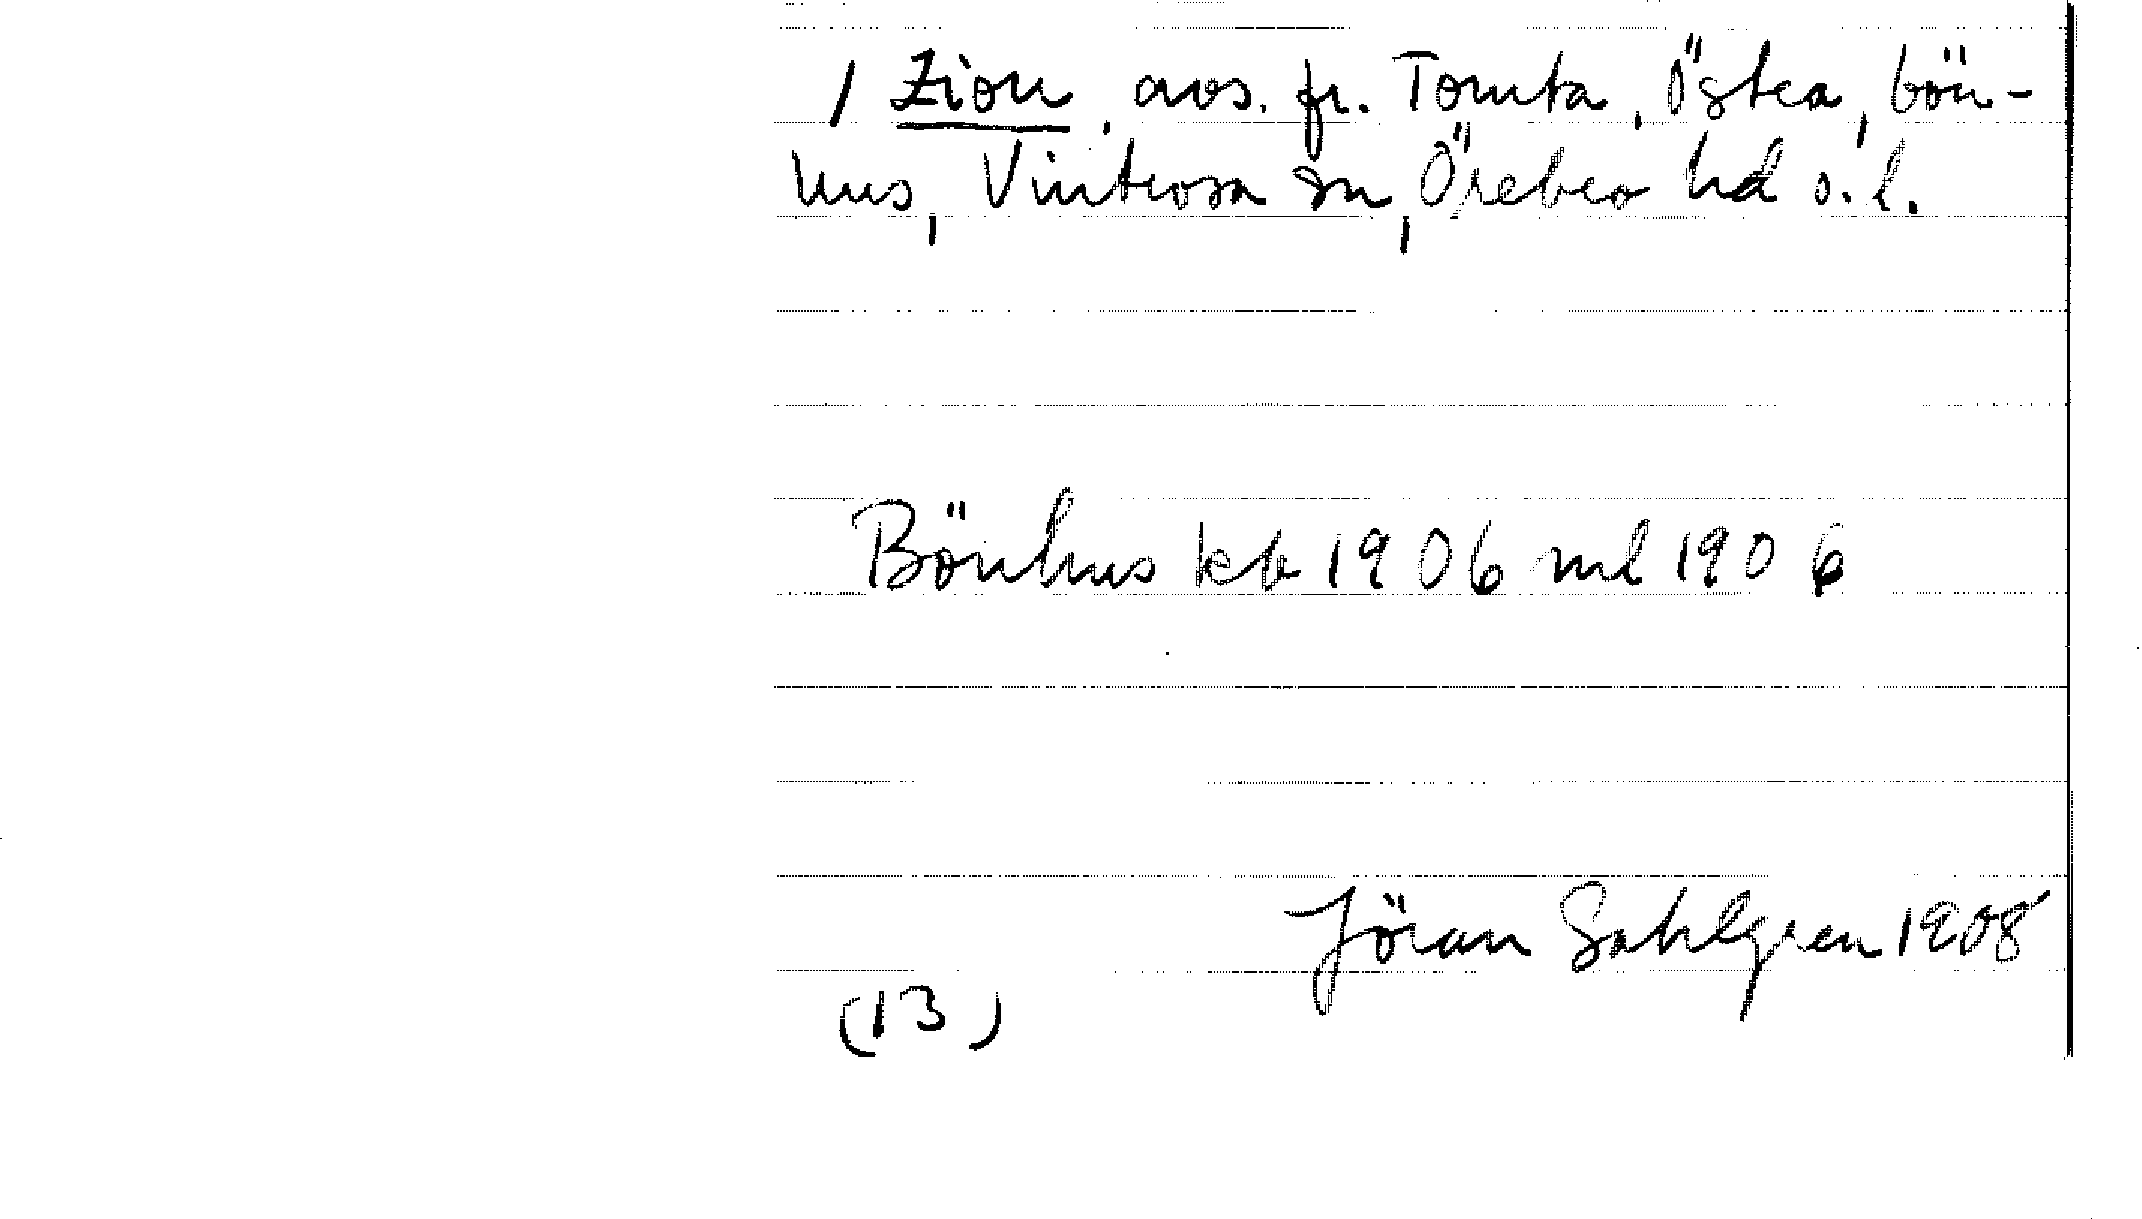 / Zion, avs. fr. Tomta, Östra, bön-
hus, Vintrosa sn, Örebro hd o. l.
Bönhus kb 1906 ml 1906
Jöran Sahlgren 1908
(13)